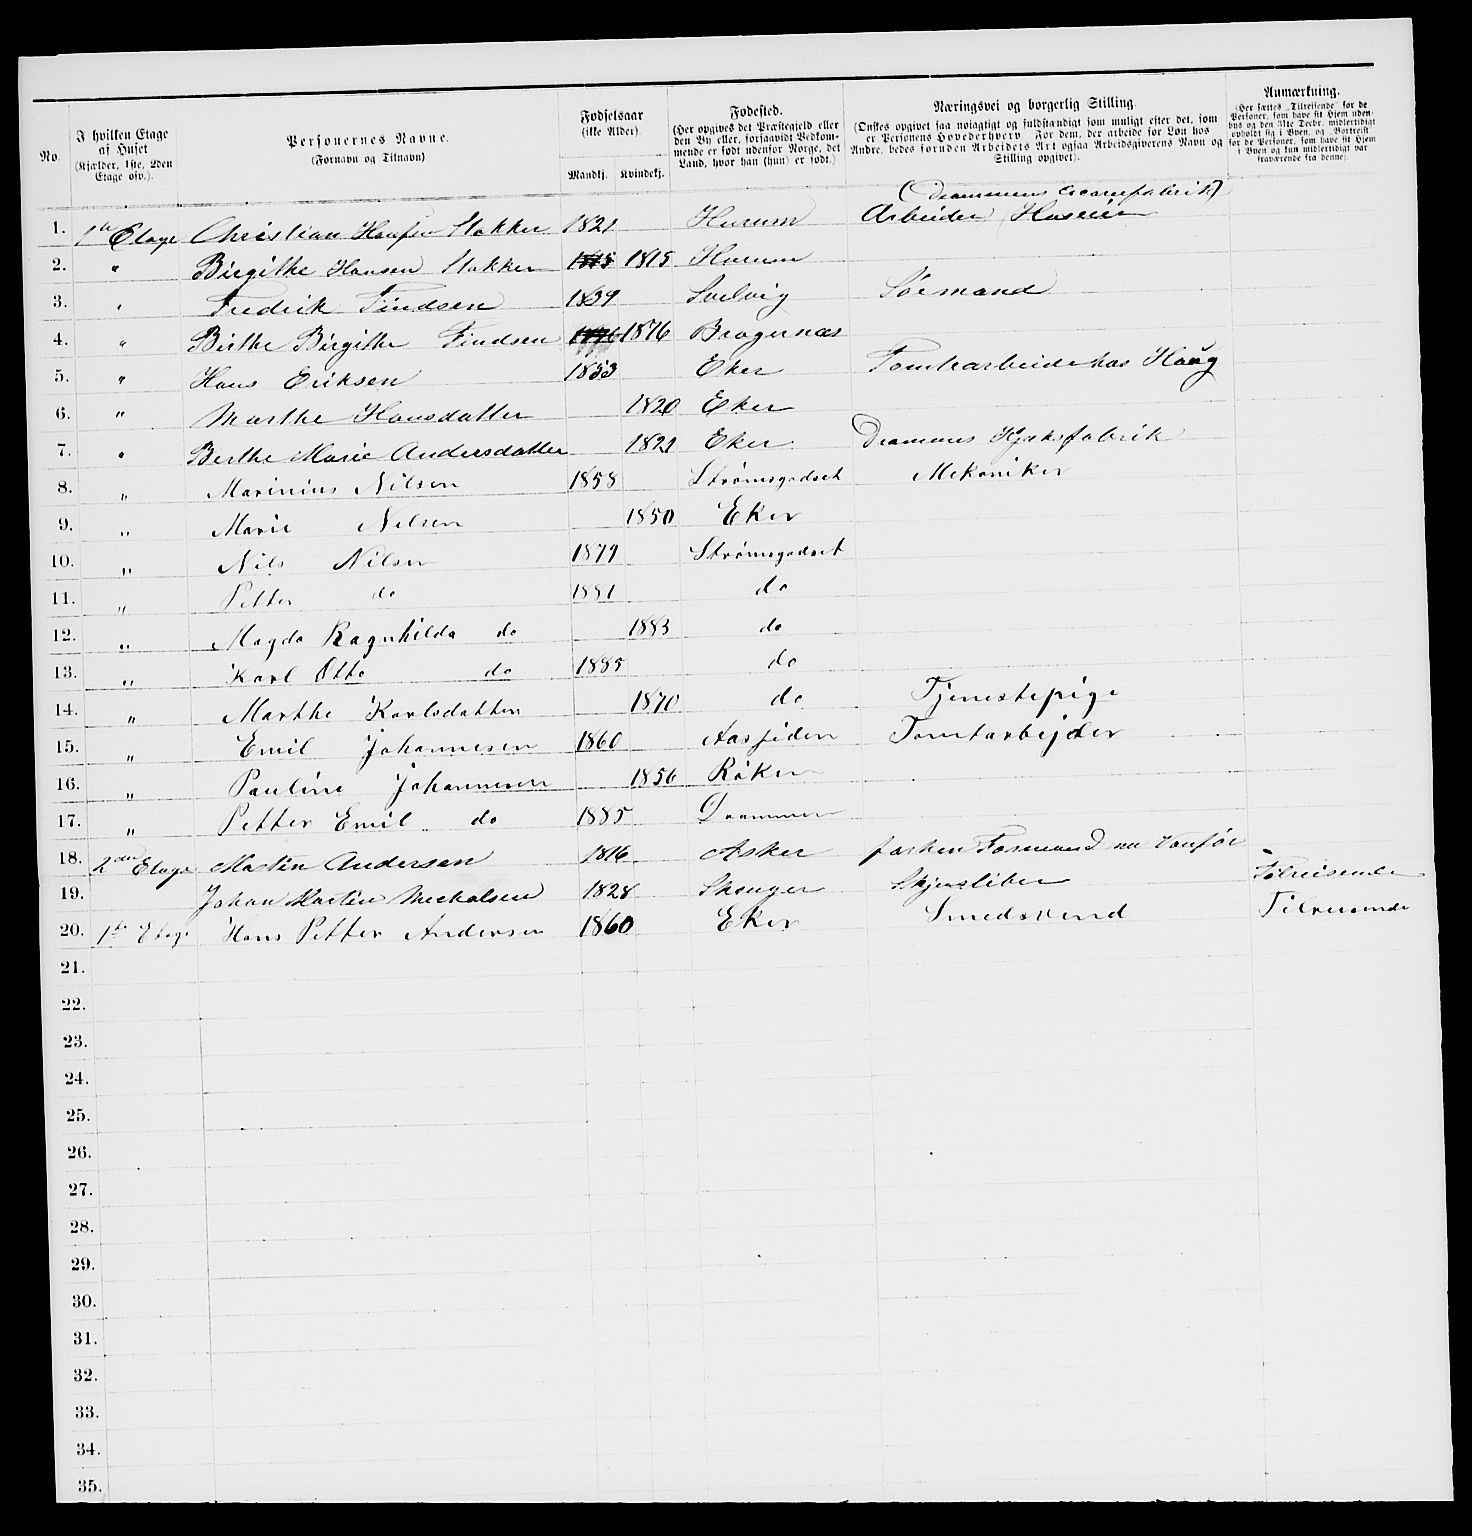 No.
I hvilken Etage af Huset (Kjælder, 1ste, 2den Etage osv.).
Personernes Navne. (Fornavn og Tilnavn)
Fødselsaar (ikke Alder).
Mandkj. Kvindekj.
Fødested. (Her opgives det Præstegjeld eller den By eller, forsaavidt Vedkommende er født udenfor Norge, det Land, hvor han (hun) er født.)
Næringsvei og borgerlig Stilling. (Ønskes opgivet saa nøiagtigt og fuldstændigt som muligt efter det, som er Personens Hovederhverv. For dem, der arbeide for Løn hos Andre, bedes foruden Arbeidets Art ogsaa Arbeidsgiverens Navn og Stilling opgivet).
Anmærkning. (Her sættes „Tilreisende“ for de Personer, som have sit Hjem udenbys og den 31te Decbr. midlertidigt opholdt sig i Byen, og „Bortreist“ for de Personer, som have sit Hjem i Byen og kun midlertidigt var fraværende fra denne).
(Drammens fabrik)
1. 1te Etage Christian Hansen Stokker 1821 Hurum Arbeider Huseier
2. " Birgithe Hansen Stokker 1815 Hurum
3. " Fredrik Findsen 1839 Svelvig Sømand
4. " Birthe Birgithe Findsen 1876 Bragernæs
5. " Hans Eriksen 1853 Eker Tomtearbeide hos Haug
6. " Marthe Hansdatter 1820 Eker
7. " Berthe Marie Andersdatter 1821 Eker Drammens fabrik
8. " Marinius Nilsen 1858 Strømsgodset Mekaniker
9. " Marie Nilsen 1850 Eker
10. " Nils Nilsen 1879 Strømsgodset
11. " Petter do 1881 do
12. " Magda Ragnhilda do 1883 do
13. " Karl Otto do 1885 do
14. " Marthe Karlsdatter 1870 do Tjenestepige
15. " Emil Johannesen 1860 Aassiden Tomtarbejder
16. " Pauline Johannesen 1856 Røken
17. " Petter Emil do 1885 Drammen
18. 2den Etage Martin Andersen 1816 Asker Vanfør
19. Johan Martin Mechalsen 1828 Skouger Skjærsliber Tilreisende
20. 1te Etage Hans Petter Andersen 1860 Eker Smedsvend Tilreisende
21.
22.
23.
24.
25.
26.
27.
28.
29.
30.
31.
32.
33.
34.
35.